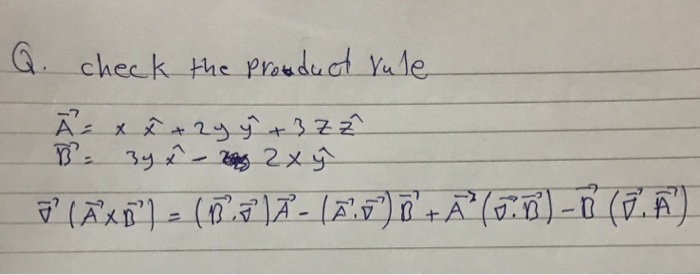 Q. check the product rule
A⃗ = x x̂ + 2y ŷ + 3 z ẑ
B⃗ = 3y x̂ - 2x ŷ
∇⃗ (A⃗ × B⃗) = (B⃗.∇⃗) A⃗ - (A⃗.∇⃗) B⃗ + A⃗ (∇⃗.B⃗) - B⃗ (∇⃗.A⃗)